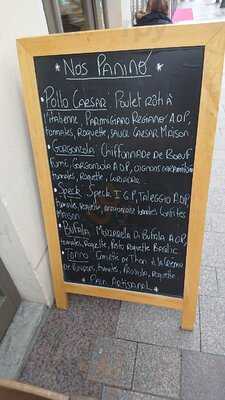 Nos Panino
Pollo Caesar Poulet rôti à
l'italienne, Parmigiano Regiano AOP,
tomates, Roquette, sauce Caesar Maison
Gorgonzola Chiffonnade de Boeuf
Fumé, Gorgonzola AOP, oignons
tomates, Roquette,
Speck Speck I.G.P, Taleggio AOP
tomates, Roquette, tomates Confites
Maison
Bufala Mozzarella Di Bufala AOP
tomates, Roquette, Pesto Roquette Basilic
Tonno de Thon à la Crème
de tomates, Roquette
Pain Artisanal